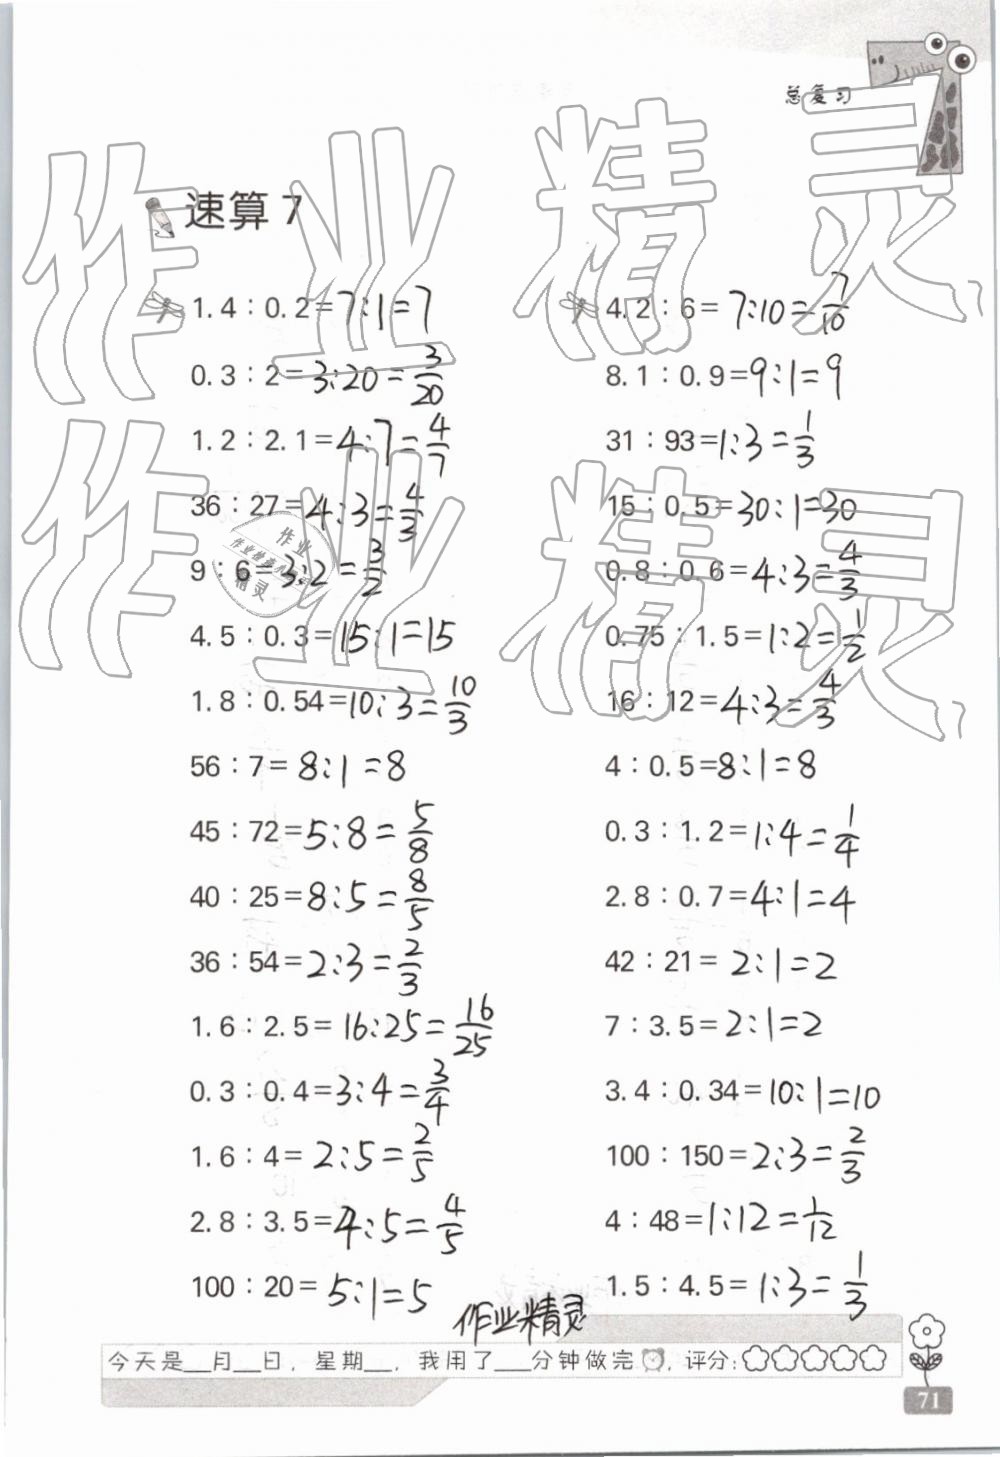 总复习
速算 7
1.4：0.2=7:1=7
4.2：6=7:10=7/10
0.3：2=3:20=3/20
8.1：0.9=9:1=9
1.2：2.1=4:7=4/7
31：93=1:3=1/3
36：27=4:3=4/3
15：0.5=30:1=30
9：6=3:2=3/2
0.8：0.6=4:3=4/3
4.5：0.3=15:1=15
0.75：1.5=1:2=1/2
1.8：0.54=10:3=10/3
16：12=4:3=4/3
56：7=8:1=8
4：0.5=8:1=8
45：72=5:8=5/8
0.3：1.2=1:4=1/4
40：25=8:5=8/5
2.8：0.7=4:1=4
36：54=2:3=2/3
42：21=2:1=2
1.6：2.5=16:25=16/25
7：3.5=2:1=2
0.3：0.4=3:4=3/4
3.4：0.34=10:1=10
1.6：4=2:5=2/5
100：150=2:3=2/3
2.8：3.5=4:5=4/5
4：48=1:12=1/12
100：20=5:1=5
1.5：4.5=1:3=1/3
作业精灵
今天是__月__日，星期__，我用了___分钟做完，评分：
71
作业精灵
作业精灵
作业
精灵